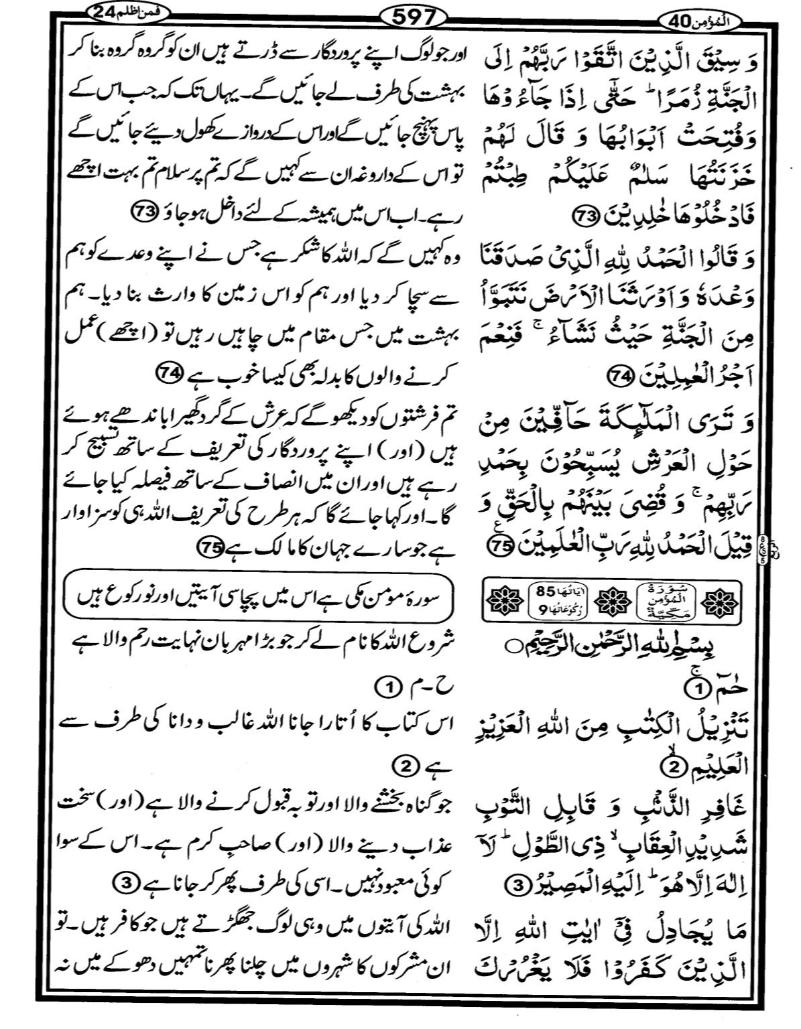 المؤمن 40
597
فمن اظلم 24
وَ سِيْقَ الَّذِيْنَ اتَّقَوْا رَبَّهُمْ اِلَى
الْجَنَّةِ زُمَرًا ؕ حَتّٰۤى اِذَا جَآءُوْهَا
وَفُتِحَتْ اَبْوَابُهَا وَ قَالَ لَهُمْ
خَزَنَتُهَا سَلٰمٌ عَلَيْكُمْ طِبْتُمْ
فَادْخُلُوْهَا خٰلِدِيْنَ 73
وَ قَالُوا الْحَمْدُ لِلّٰهِ الَّذِيْ صَدَقَنَا
وَعْدَهٗ وَ اَوْرَثَنَا الْاَرْضَ نَتَبَوَّاُ
مِنَ الْجَنَّةِ حَيْثُ نَشَآءُ ۚ فَنِعْمَ
اَجْرُ الْعٰمِلِيْنَ 74
وَ تَرَى الْمَلٰٓئِكَةَ حَآفِّيْنَ مِنْ
حَوْلِ الْعَرْشِ يُسَبِّحُوْنَ بِحَمْدِ
رَبِّهِمْ ۚ وَ قُضِيَ بَيْنَهُمْ بِالْحَقِّ وَ
قِيْلَ الْحَمْدُ لِلّٰهِ رَبِّ الْعٰلَمِيْنَ 75
سُوْرَةُ الْمُؤْمِنِ مَكِّيَّةٌ
اٰيَاتُهَا 85 رُكُوْعَاتُهَا 9
بِسْمِ اللّٰهِ الرَّحْمٰنِ الرَّحِيْمِ
حٰمٓ ۚ 1
تَنْزِيْلُ الْكِتٰبِ مِنَ اللّٰهِ الْعَزِيْزِ
الْعَلِيْمِ ۙ 2
غَافِرِ الذَّنْۢبِ وَ قَابِلِ التَّوْبِ
شَدِيْدِ الْعِقَابِ ۙ ذِي الطَّوْلِ ؕ لَاۤ
اِلٰهَ اِلَّا هُوَ ؕ اِلَيْهِ الْمَصِيْرُ 3
مَا يُجَادِلُ فِيْۤ اٰيٰتِ اللّٰهِ اِلَّا
الَّذِيْنَ كَفَرُوْا فَلَا يَغْرُرْكَ
اور جو لوگ اپنے پروردگار سے ڈرتے ہیں ان کو گروہ گروہ بنا کر
بہشت کی طرف لے جائیں گے۔ یہاں تک کہ جب اس کے
پاس پہنچ جائیں گے اور اس کے دروازے کھول دیئے جائیں گے
تو اس کے داروغہ ان سے کہیں گے کہ تم پر سلام تم بہت اچھے
رہے۔ اب اس میں ہمیشہ کے لئے داخل ہو جاؤ 73
وہ کہیں گے کہ اللہ کا شکر ہے جس نے اپنے وعدے کو ہم
سے سچا کر دیا اور ہم کو اس زمین کا وارث بنا دیا۔ ہم
بہشت میں جس مقام میں چاہیں رہیں تو (اچھے) عمل
کرنے والوں کا بدلہ بھی کیسا خوب ہے 74
تم فرشتوں کو دیکھو گے کہ عرش کے گرد گھیرا باندھے ہوئے
ہیں (اور) اپنے پروردگار کی تعریف کے ساتھ تسبیح کر
رہے ہیں اور ان میں انصاف کے ساتھ فیصلہ کیا جائے
گا۔ اور کہا جائے گا کہ ہر طرح کی تعریف اللہ ہی کو سزاوار
ہے جو سارے جہان کا مالک ہے 75
سورۂ مومن مکی ہے اس میں پچاسی آیتیں اور نو رکوع ہیں
شروع اللہ کا نام لے کر جو بڑا مہربان نہایت رحم والا ہے
ح۔م 1
اس کتاب کا اُتارا جانا اللہ غالب و دانا کی طرف سے
ہے 2
جو گناہ بخشنے والا اور توبہ قبول کرنے والا ہے (اور) سخت
عذاب دینے والا (اور) صاحبِ کرم ہے۔ اس کے سوا
کوئی معبود نہیں۔ اسی کی طرف پھر کر جانا ہے 3
اللہ کی آیتوں میں وہی لوگ جھگڑتے ہیں جو کافر ہیں۔ تو
ان مشرکوں کا شہروں میں چلنا پھرنا تمہیں دھوکے میں نہ